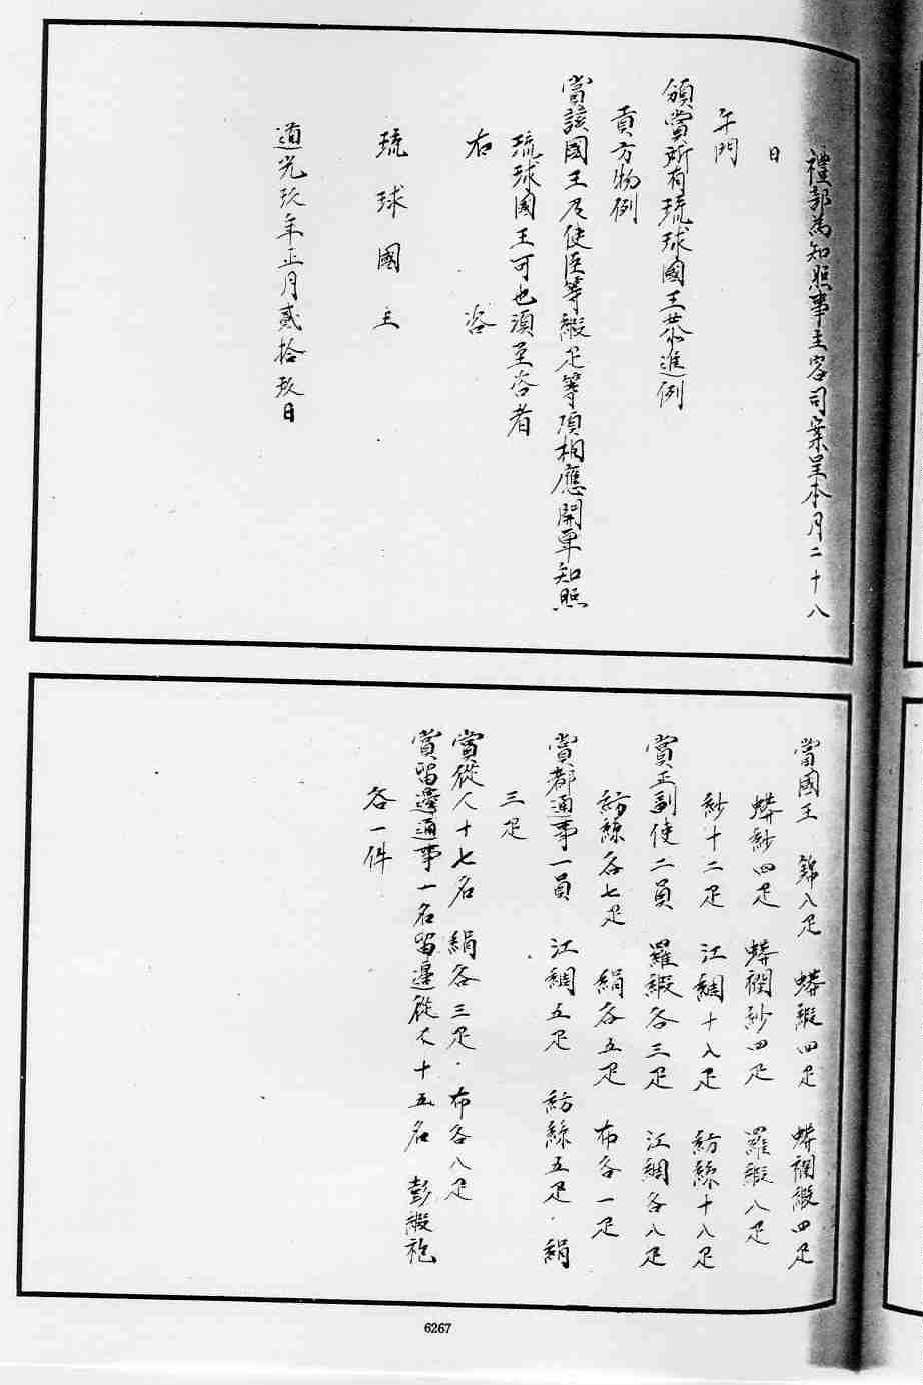 禮部為知照事主客司案呈本月二十八
日
午門
頒賞所有琉球國王恭進例
貢方物例
賞該國王及使臣等緞疋等項相應開單知照
琉球國王可也須至咨者
右 咨
琉 球 國 王
道光玖年正月貳拾玖日
賞國王 錦八疋 蟒緞四疋 蟒襴緞四疋
蟒紗四疋 蟒襴紗四疋 羅緞八疋
紗十二疋 江綢十八疋 紡絲十八疋
賞正副使二員 羅緞各三疋 江綢各八疋
紡絲各七疋 絹各五疋 布各一疋
賞都通事一員 江綢五疋 紡絲五疋 絹
三疋
賞從人十七名 絹各三疋 布各八疋
賞留邊通事一名留邊從人十五名 彭緞袍
各一件
6267